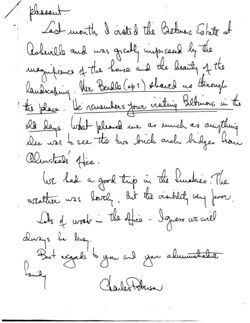 pleasant.
Last month I visited the Biltmore Estate at
Asheville and was greatly impressed by the
magnificence of the house and the beauty of the
landscaping. Mr Beadle (sp?) showed us through
the place. He remembers your visiting Biltmore in the
old days. What pleased me as much as anything
else was to see the two brick arch bridges from
Olmsteads' office.
We had a good trip in the Smokies. The
weather was lovely, but the visibility very poor.
Lots of work in the office - I guess we will
always be busy.
Best regards to you and your
family
Charles